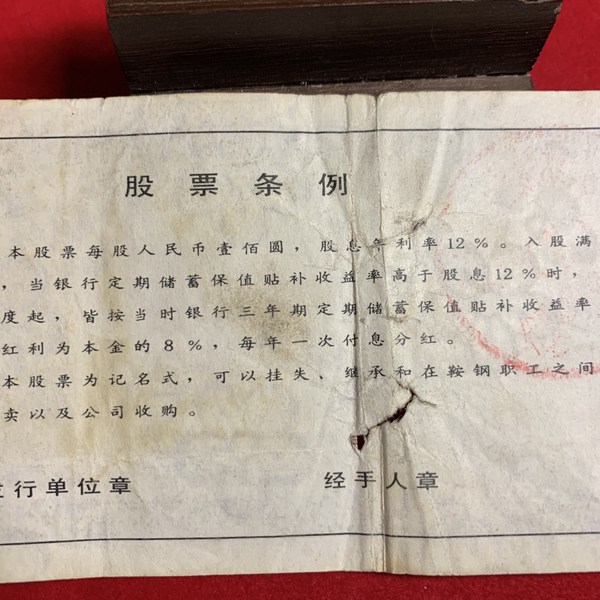 股票条例
本股票每股人民币壹佰圆，股息年利率12%。入股满
，当银行定期储蓄保值贴补收益率高于股息12%时，
度起，皆按当时银行三年期定期储蓄保值贴补收益率
红利为本金的8%，每年一次付息分红。
本股票为记名式，可以挂失、继承和在鞍钢职工之间
卖以及公司收购。
行单位章
经手人章